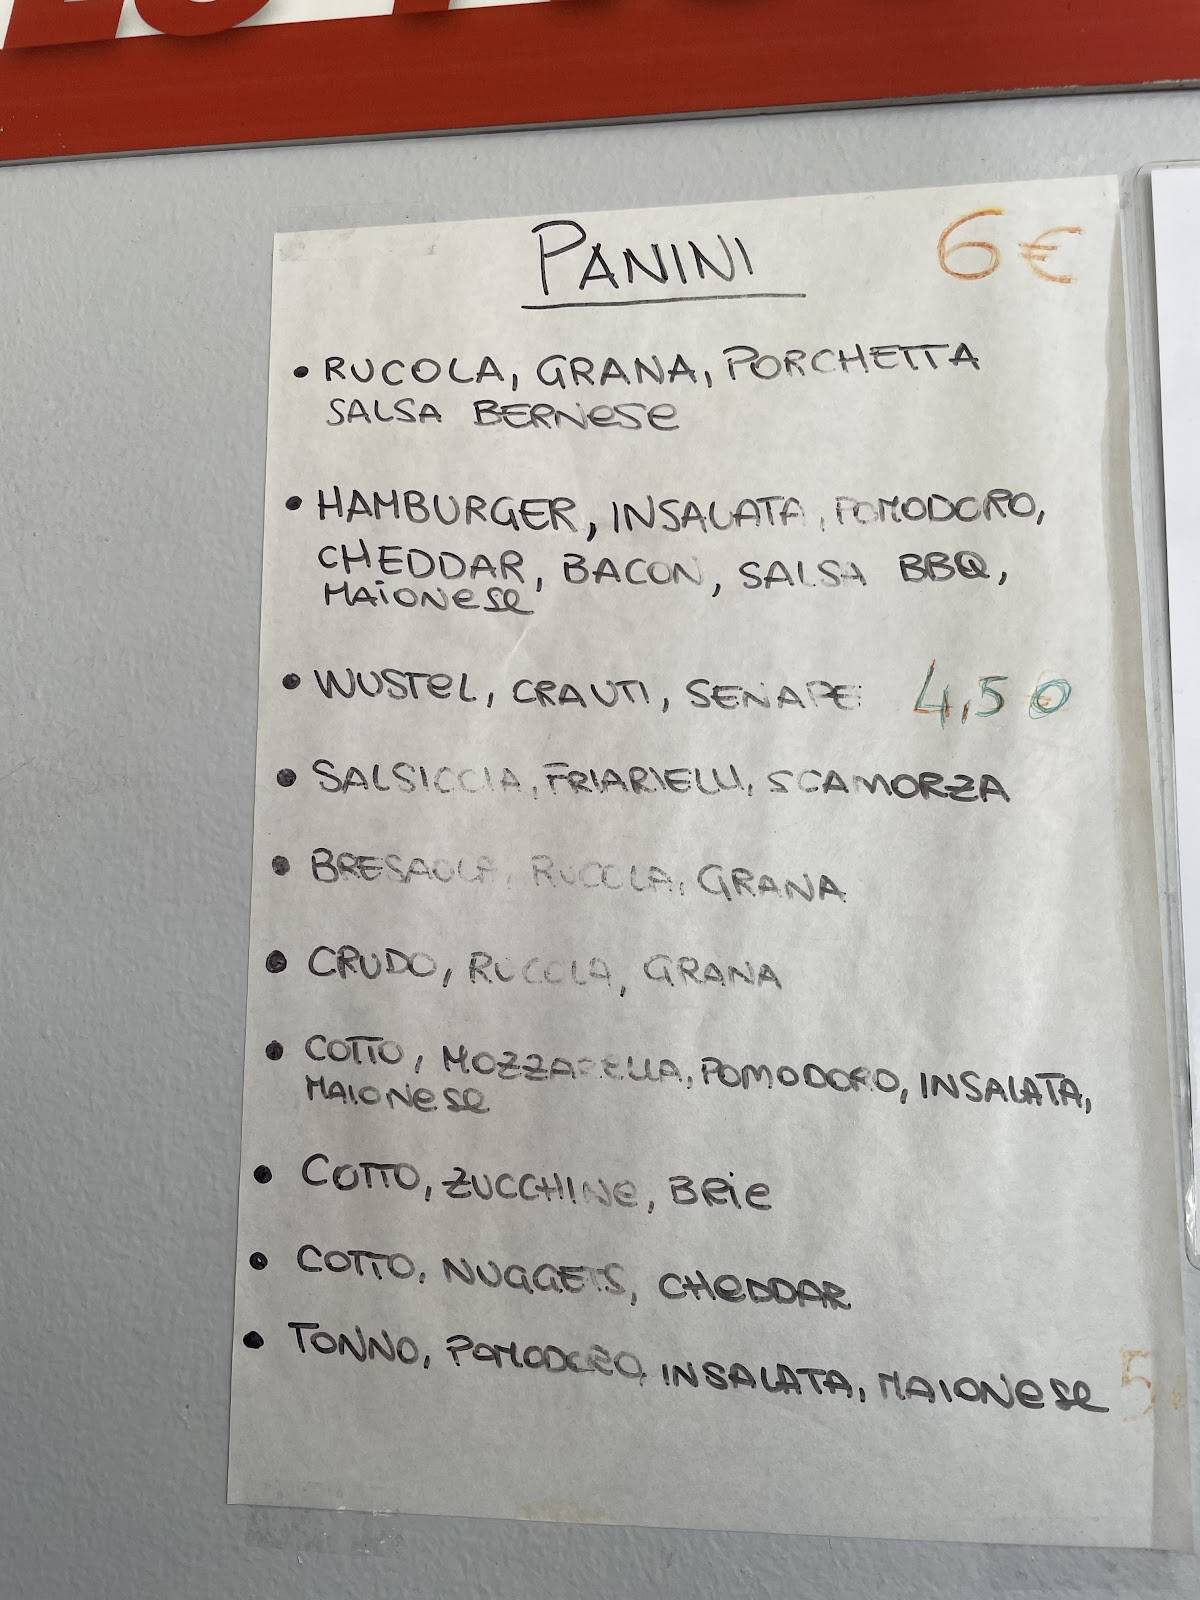 PANINI 6€
• RUCOLA, GRANA, PORCHETTA
SALSA BERNESE
• HAMBURGER, INSALATA, POMODORO,
CHEDDAR, BACON, SALSA BBQ,
MAIONESE
• WUSTEL, CRAUTI, SENAPE 4,50
• SALSICCIA, FRIARIELLI, SCAMORZA
• BRESAOLA, RUCOLA, GRANA
• CRUDO, RUCOLA, GRANA
• COTTO, MOZZARELLA, POMODORO, INSALATA,
MAIONESE
• COTTO, ZUCCHINE, BRIE
• COTTO, NUGGETS, CHEDDAR
• TONNO, POMODORO, INSALATA, MAIONESE 5